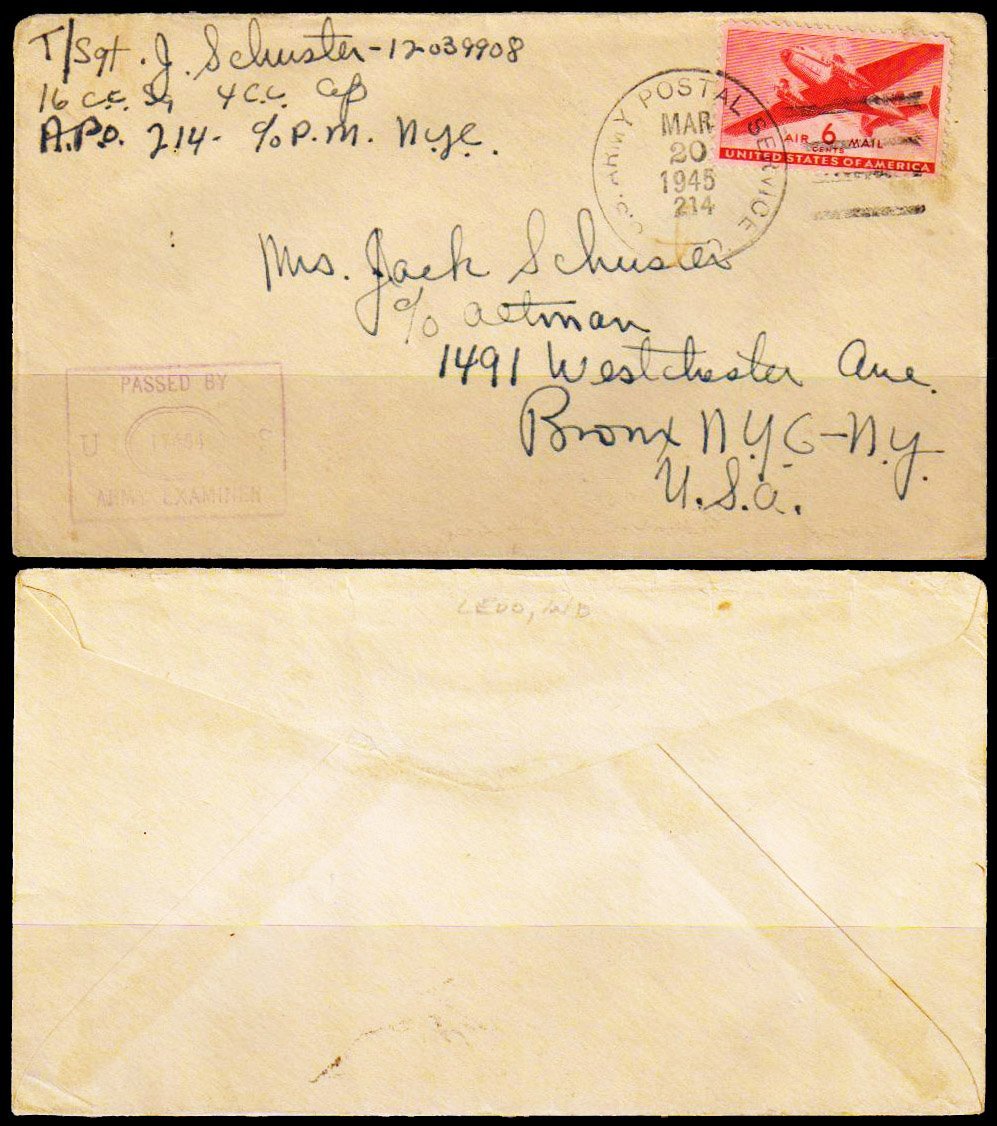 T/Sgt. J. Schuster-12039908
16 C.C. Sq 4 C.C. Gp
A.P.O. 214- c/o P.M. N.Y.C.
U.S. ARMY POSTAL SERVICE
MAR
20
1945
214
AIR 6 MAIL
CENTS
UNITED STATES OF AMERICA
Mrs. Jack Schuster
c/o Altman
1491 Westchester Ave.
Bronx N.Y. C-N.Y.
U.S.A.
PASSED BY
U S
ARMY EXAMINER
LEDO, IND